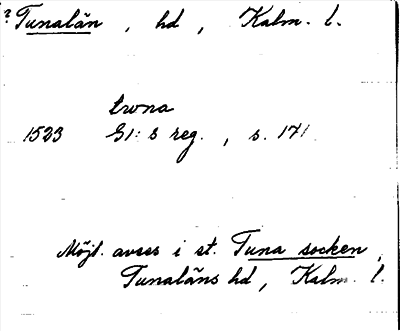 ? Tunalän, hd, Kalm. l.
trona
1523 G1:s reg., s. 171.
Möjl. avses i st. Tuna socken,
Tunaläns hd, Kalm. l.